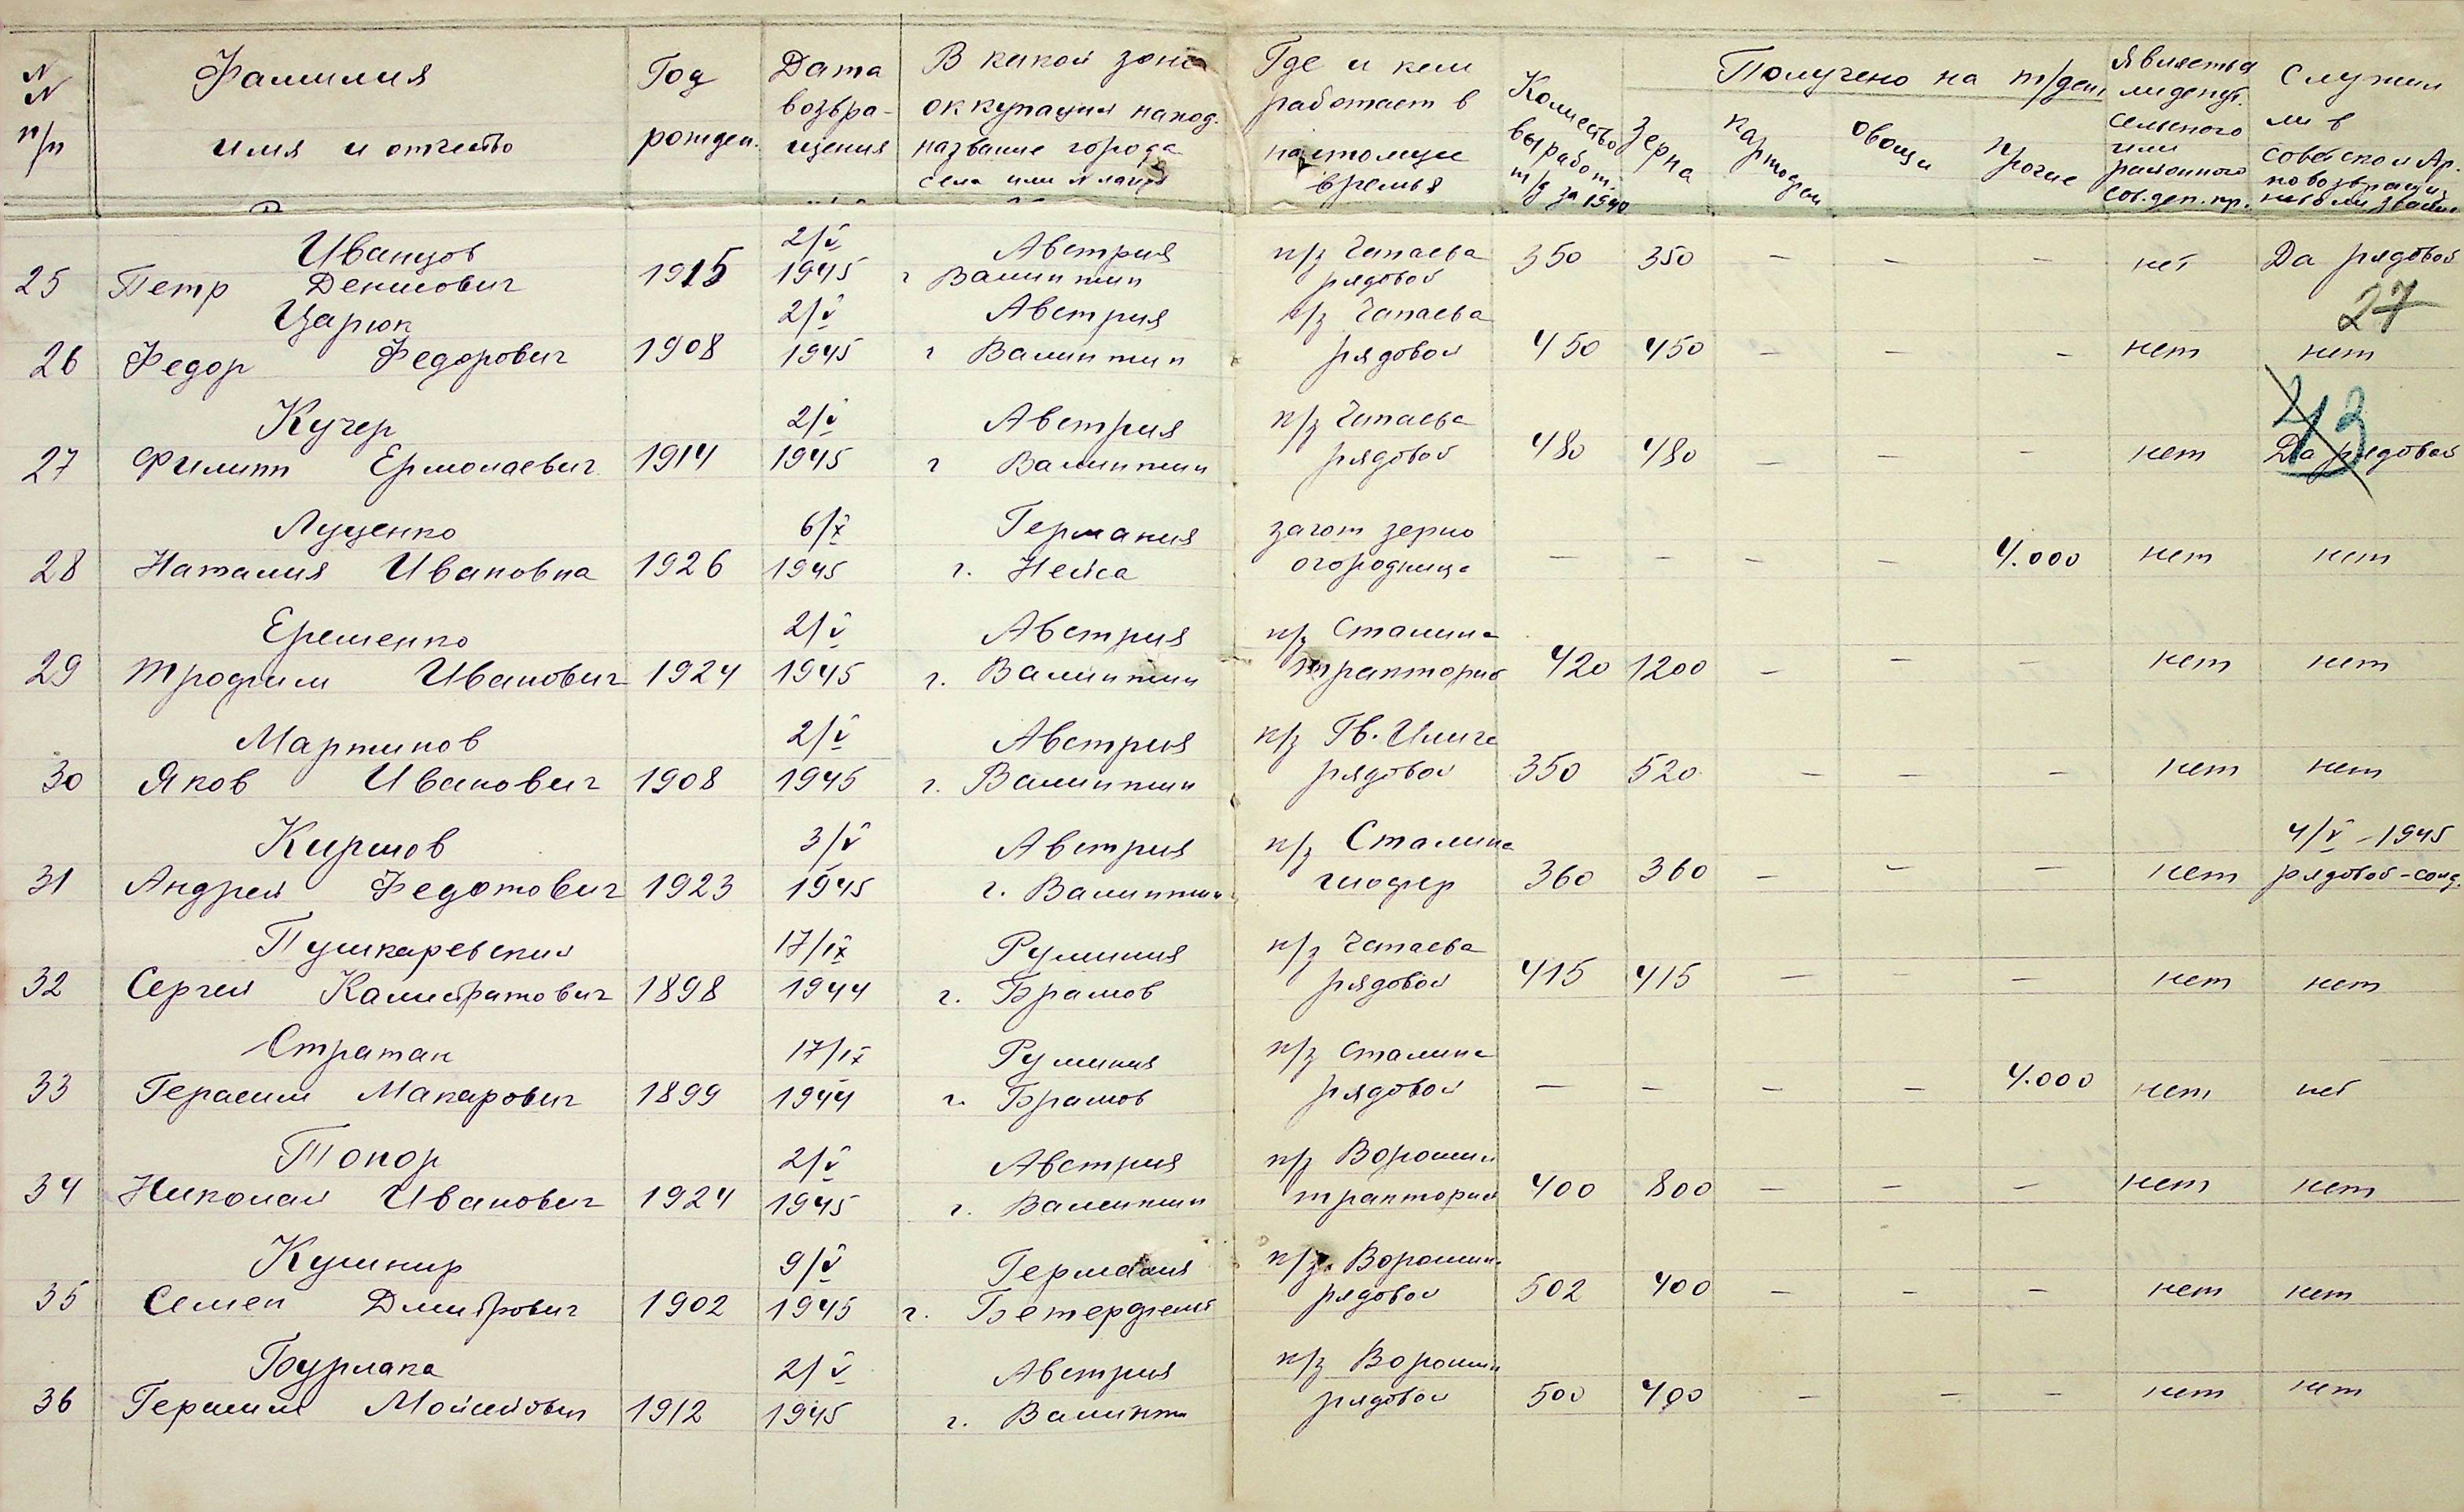 N
N
п/п
Фамилия
имя и отчество
Год
рожден.
Дата
возвра-
щения
В какой зоне
оккупации наход.
название города
села или № лагеря
Где и кем
работает в
настоящее
время
Количество
выработ.
т/д за 1940
Получено на т/день
Зерна
картофеля
овощи
прочие
Является
ли депут.
сельского
или
районного
сов. деп. тр.
Служил
ли в
советской Ар.
по возвращ.
25
Иванцов
Петр Денисович
1915
2/V
1945
Австрия
г Валинтин
к/з Чапаева
рядовой
350
350
—
—
—
нет
Да рядовой
27
26
Царюк
Федор Федорович
1908
2/V
1945
Австрия
г Валинтин
к/з Чапаева
рядовой
450
450
—
—
—
нет
нет
27
Кучер
Филипп Ермолаевич
1914
2/V
1945
Австрия
г Валинтин
к/з Чапаева
рядовой
480
480
—
—
—
нет
Да рядовой
28
Луценко
Наталия Ивановна
1926
6/X
1945
Германия
г. Нейса
загот зерно
огородница
—
—
—
—
4.000
нет
нет
29
Еременко
Трофим Иванович
1924
2/V
1945
Австрия
г. Валинтин
к/з Сталина
тракторис
420
1200
—
—
—
нет
нет
30
Мартинов
Яков Иванович
1908
2/V
1945
Австрия
г. Валинтин
к/з Ів. Илича
рядовой
350
520
—
—
—
нет
нет
31
Кирилов
Андрей Федотович
1923
3/V
1945
Австрия
г. Валинтин
к/з Сталина
шофер
360
360
—
—
—
нет
4/V - 1945
рядовой - солд.
32
Пушкаревский
Сергей Калистратович
1898
17/IX
1944
Румыния
г. Брашов
к/з Чапаева
рядовой
415
415
—
—
—
нет
нет
33
Стратан
Герасим Макарович
1899
17/IX
1944
Румыния
г. Брашов
к/з Сталина
рядовой
—
—
—
—
4.000
нет
нет
34
Топор
Николай Иванович
1924
2/V
1945
Австрия
г. Валинтин
к/з Ворошил
тракторис
400
800
—
—
—
нет
нет
35
Кушнир
Семен Дмитрович
1902
9/V
1945
Германия
г. Бетерфельт
к/з Ворошил.
рядовой
502
400
—
—
—
нет
нет
36
Бурлака
Герасим Мойсейович
1912
2/V
1945
Австрия
г. Валинти
к/з Ворошил
рядовой
500
400
—
—
—
нет
нет